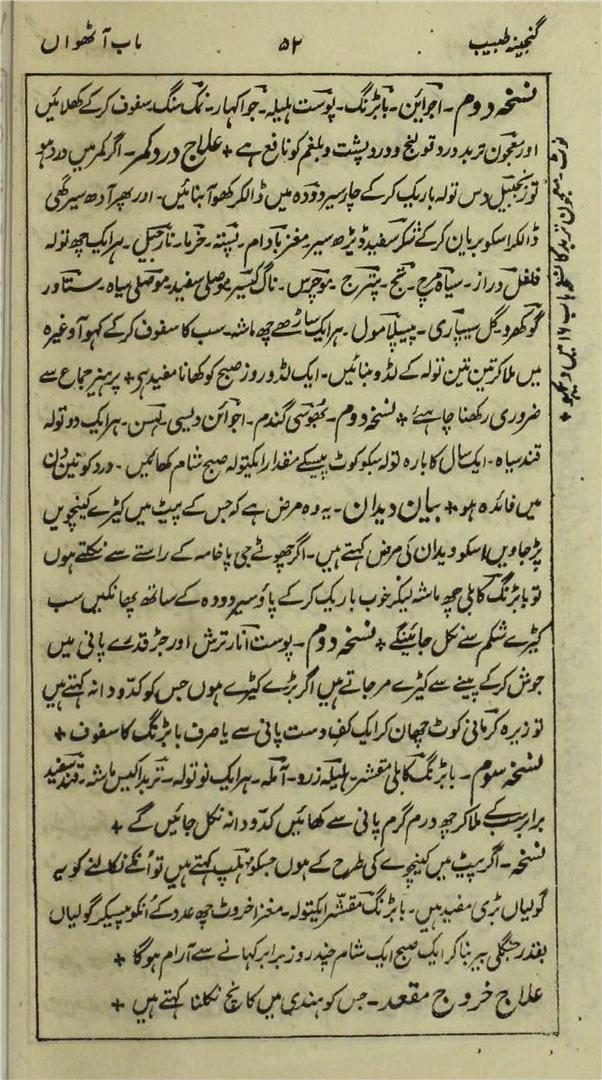 گنجینہ طبیب ۵۲ باب آٹھواں
نسخہ دوم۔ اجوائن۔ بابڑنگ۔ پوست ہلیلہ۔ جواکہار۔ نمک سنگ۔ سفوف کرکے کھلائیں
اور معجون تربد درد قولنج و درد پشت و بلغم کو نافع ہے + علاج درد کمر۔ اگر کمر میں درد ہو
تو زنجبیل دس تولہ باریک کرکے چار سیر دودہ میں ڈالکر کھوآ بنائیں۔ اور پھر آدھ سیر گھی
ڈالکر اسکو بریان کرکے شکر سفید ڈیڑھ سیر مغز بادام۔ پستہ۔ خرما۔ نارجیل۔ ہر ایک چھ تولہ
فلفل دراز۔ سیاہ مرچ۔ تج۔ پترج۔ موچرس۔ ناگ کیسر۔ موصلی سفید۔ موصلی سیاہ۔ ستاور
گوکھرو۔ گل سپیاری۔ پیپلامول۔ ہر ایک ساڑھے چھ ماشہ۔ سب کا سفوف کرکے کہوآ وغیرہ
میں ملاکر تین تین تولہ کے لڈو بنائیں۔ ایک لڈو روز صبح کو کھانا مفید ہی + پرہیز جماع سے
ضروری رکھنا چاہئے + نسخہ دوم۔ بھوسی گندم۔ اجوائن دیسی۔ لہسن۔ ہر ایک دو تولہ
قند سیاہ۔ ایک سال کا بارہ تولہ سبکو کوٹ پیسکے مقدار ایکتولہ صبح شام کھائیں۔ درد کو تین دن
میں فائدہ ہو + بیان دیدان۔ یہ وہ مرض ہے کہ جس کے پیٹ میں کیڑے کینچویں
پڑجاویں اسکو دیدان کی مرض کہتے ہیں۔ اگر چھوٹے جی پاخامہ کے راستے سے نکلتے ہوں
تو بابڑنگ کابلی چھ ماشہ لیکر خوب باریک کرکے پاؤ سیر دودہ کے ساتھ پھانکیں سب
کیڑے شکم سے نکل جائینگے + نسخہ دوم۔ پوست انار ترش اور جڑ قدرے پانی میں
جوش کرکے پینے سے کیڑے مرجاتے ہیں اگر بڑے کیڑے ہوں جس کو کدو دانہ کہتے ہیں
تو زیرہ کرمانی کوٹ چھان کر ایک کف دست پانی سے یا صرف بابڑنگ کا سفوف +
نسخہ سوم۔ بابڑنگ کابلی مقشر۔ ہلیلہ زرد۔ آملہ۔ ہر ایک نو تولہ۔ تربد اکیس ماشہ۔ قند سفید
برابر سب کے ملاکر چھ درم گرم پانی سے کھائیں کدو دانہ نکل جائیں گے +
نسخہ۔ اگر پیٹ میں کینچوے کی طرح کے ہوں جسکو ملہپ کہتے ہیں تو اُنکے نکالنے کو یہ
گولیاں بڑی مفید ہیں۔ بابڑنگ مقشر ایکتولہ۔ مغز اخروٹ چھ عدد کے انکو پیسکر گولیاں
بقدر جنگلی بیر بناکر ایک صبح ایک شام چند روز برابر کہانے سے آرام ہوگا +
علاج خروج مقعد۔ جس کو ہندی میں کانچ نکلنا کہتے ہیں +
نوٹ۔ معجون تربد کا نسخہ باب ۱۶ میں دیکھو +